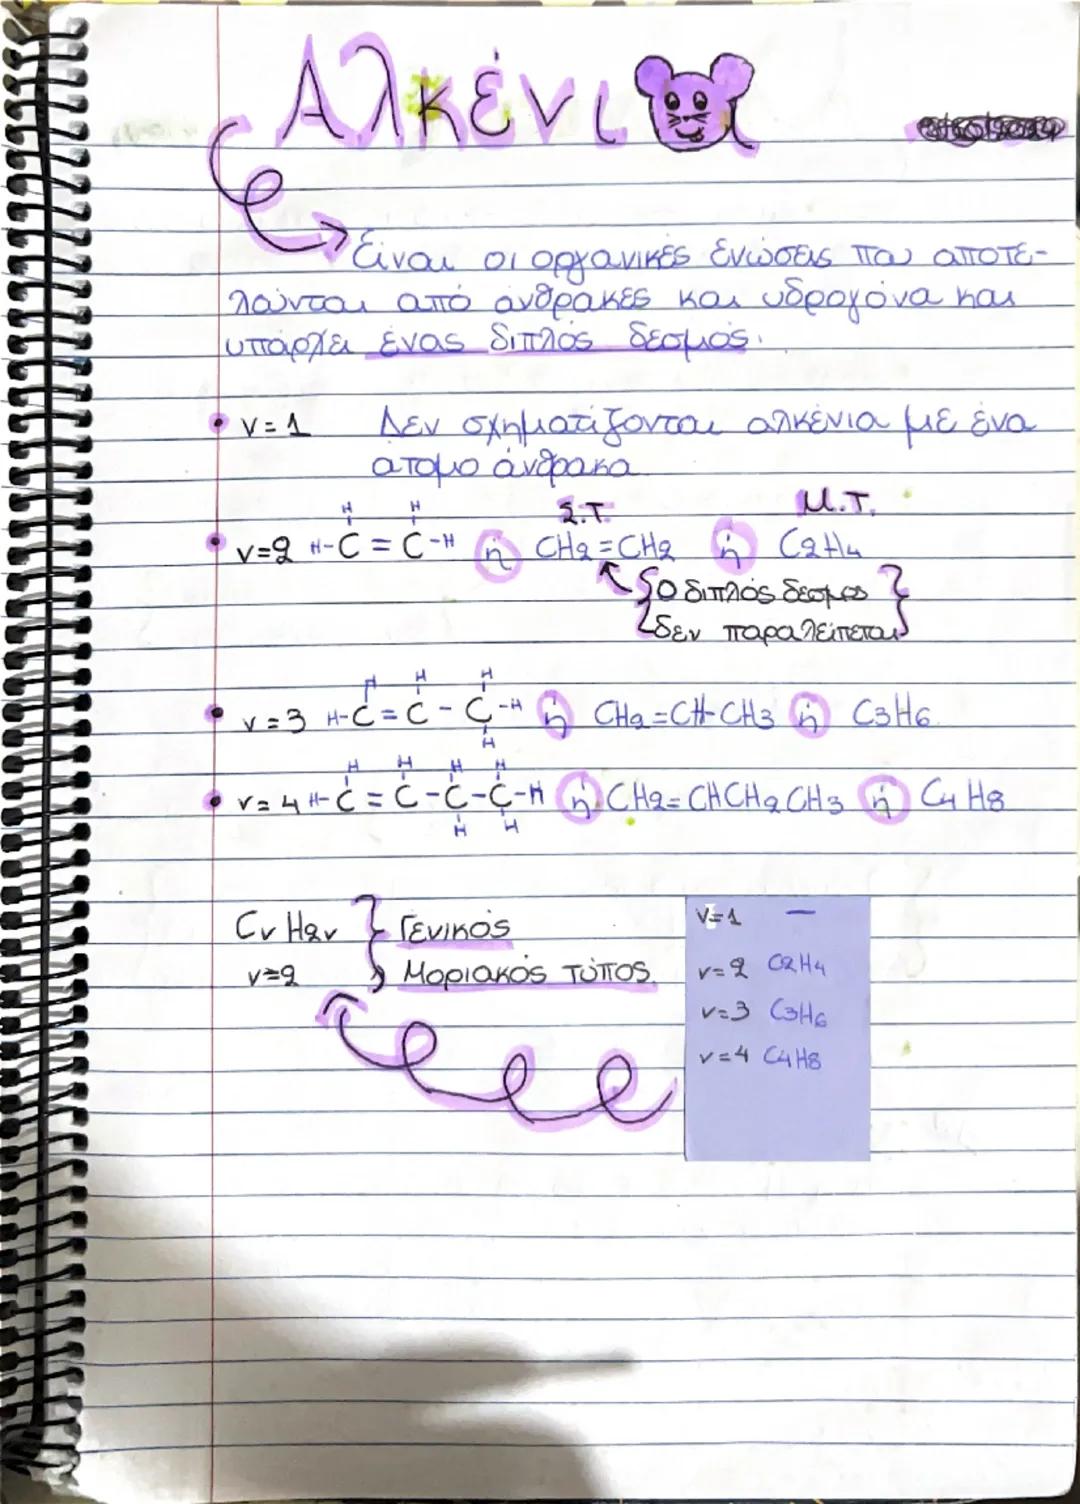 Αλκένια
Είναι οι οργανικές ενώσεις που αποτε-
λούνται από άνθρακες και υδρογόνα και
υπάρχει ένας διπλός δεσμός.
ν=1 Δεν σχηματίζονται αλκένια με ένα
ατομο άνθρακα
H H Σ.Τ. Μ.Τ.
ν=2 H-C=C-H ή CH2=CH2 ή C2H4
Ο διπλός δεσμος
δεν παραλείπεται
H H H
ν=3 H-C=C-C-H ή CH2=CH-CH3 ή C3H6
H
H H H H
ν=4 H-C=C-C-C-H ή CH2=CHCH2CH3 ή C4H8
H H
CνH2ν Γενικός
ν≥2 Μοριακός τύπος.
ν=1 —
ν=2 C2H4
ν=3 C3H6
ν=4 C4H8